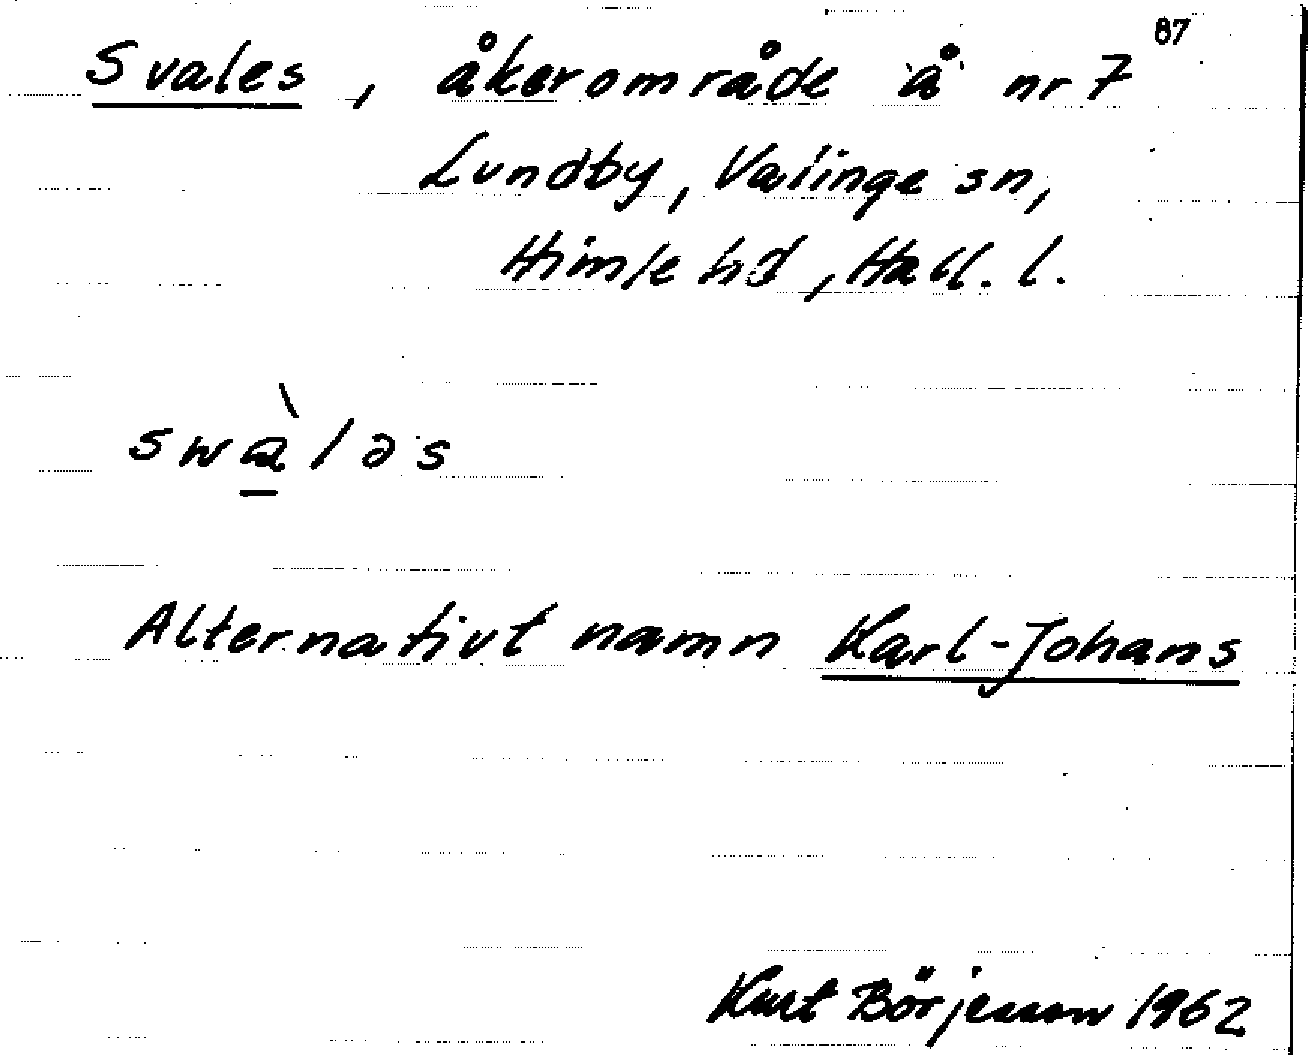 87
Svales, åkerområde å nr 7
Lundby, Valinge sn,
Himle hd, Hall. l.
swà̱ləs
Alternativt namn Karl-Johans
Kurt Börjesson 1962